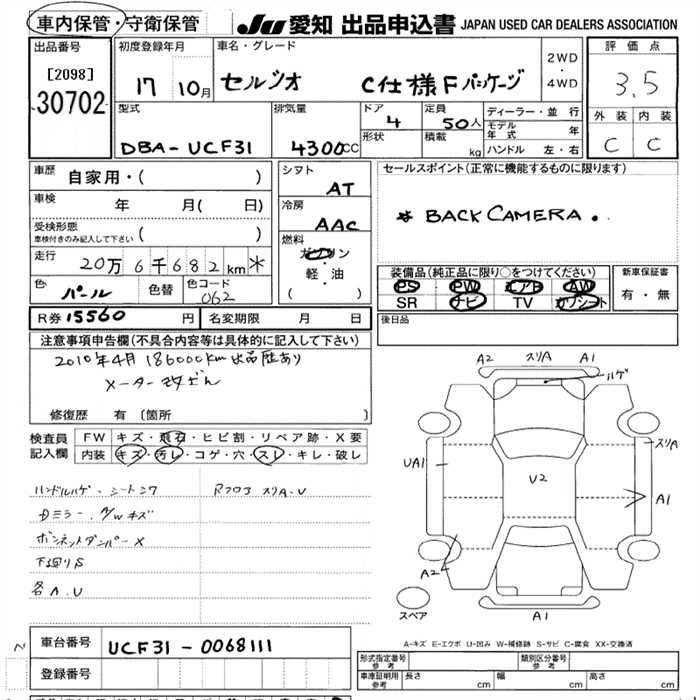 車内保管・守衛保管 JU 愛知 出品申込書 JAPAN USED CAR DEALERS ASSOCIATION
出品番号 初度登録年月 車名・グレード 評価点
[2098] 17 10月 セルシオ C仕様Fパッケージ 2WD・4WD 3.5
30702
型式 排気量 ドア 4 定員 50人 ディーラー・並行 外装 内装
モデル年式 年
DBA-UCF31 4300cc 形状 積載 kg ハンドル 左・右 C C
車歴 自家用・( ) シフト AT セールスポイント(正常に機能するものに限ります)
車検 年 月( 日) 冷房 AAC BACK CAMERA.
受検形態
車検付きのみ記入して下さい ( ) 燃料 ガソリン・軽・油 ( )
走行 20万6千682km* 装備品(純正品に限り○をつけてください) 新車保証書
色 パール 色替 色コード 062 PS PW エアB AW 有・無
SR ナビ TV カワシート
R券 15560円 名変期限 月 日 後日品
注意事項申告欄(不具合箇所等は具体的に記入して下さい)
2010年4月 186000km出品歴あり
メーター改ざん
修復歴 有 〔箇所 〕
検査員記入欄 FW キズ・飛石・ヒビ割・リペア跡・X要
内装 キズ・汚レ・コゲ・穴・スレ・キレ・破レ
ハンドルハゲ・シートシワ RフロアスリA.U
Dミラー.A/Wキズ
ボンネットダンパーX
下廻りS
各A.U
A2 スリA A1
ハゲ
スリA
UA1 U2 A1
A2
スペア A1
A-キズ E-エクボ U-凹み W-補修跡 S-サビ C-腐食 XX-交換済
N 車台番号 UCF31-0068111
登録番号
形式指定番号 参考 類別区分番号 参考
車庫証明用 参考 長さ cm 幅 cm 高さ cm